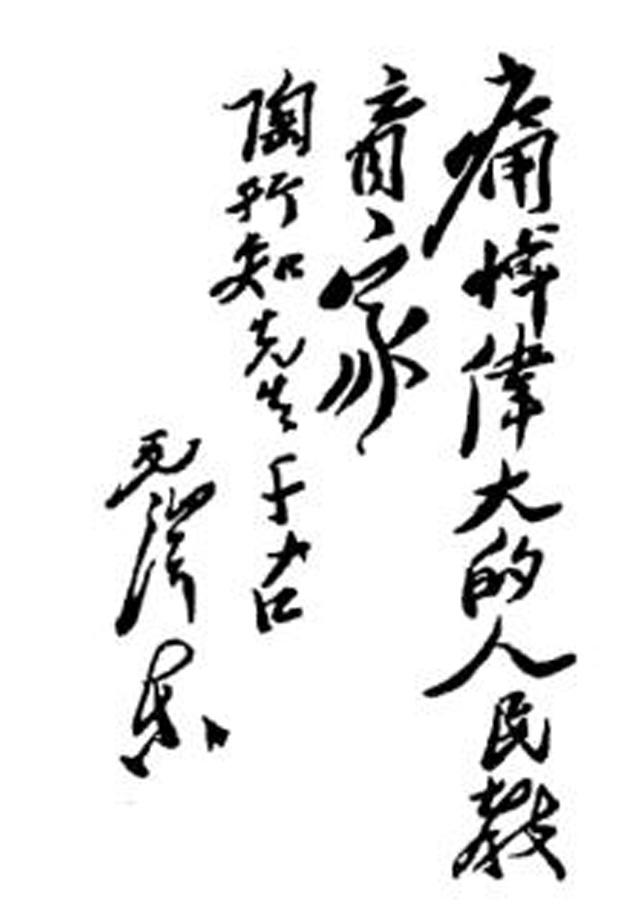 痛悼偉大的人民教
育家
陶行知先生千古
毛澤东